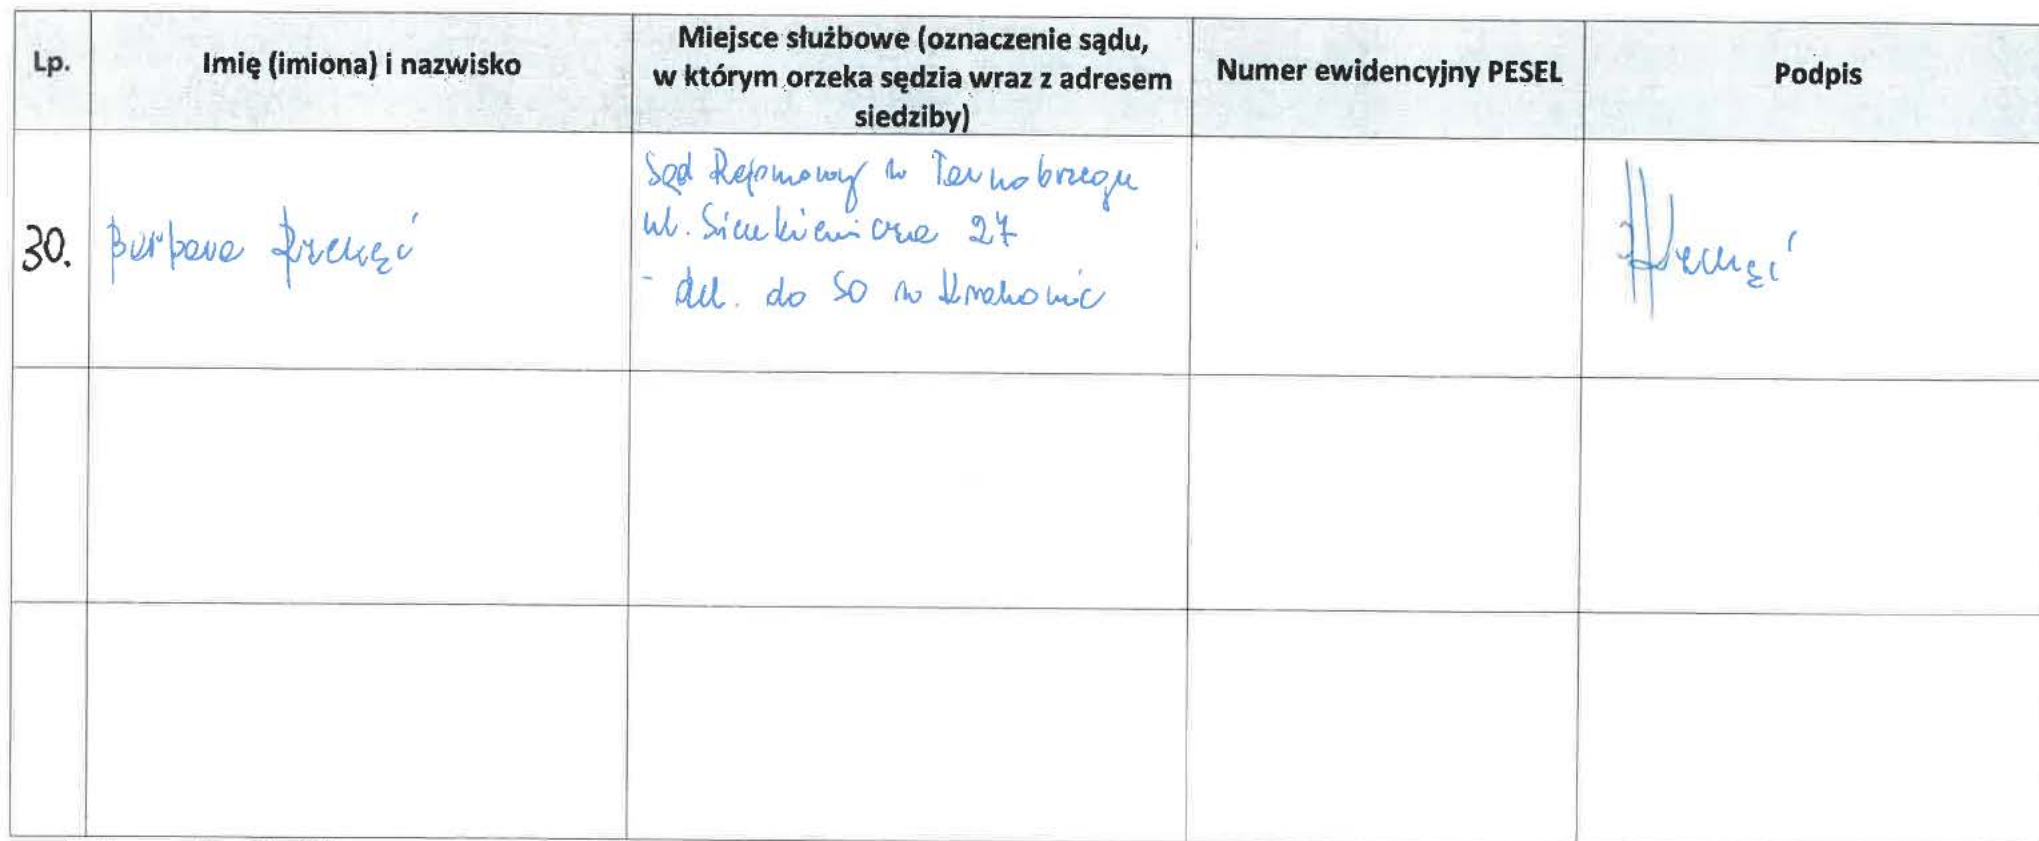 Lp.
Imię (imiona) i nazwisko
Miejsce służbowe (oznaczenie sądu,
w którym orzeka sędzia wraz z adresem
siedziby)
Numer ewidencyjny PESEL
Podpis
30.
Barbara
Sąd Rejonowy w Tarnobrzegu
ul. Sienkiewicza 27
- del. do SO w Krakowie